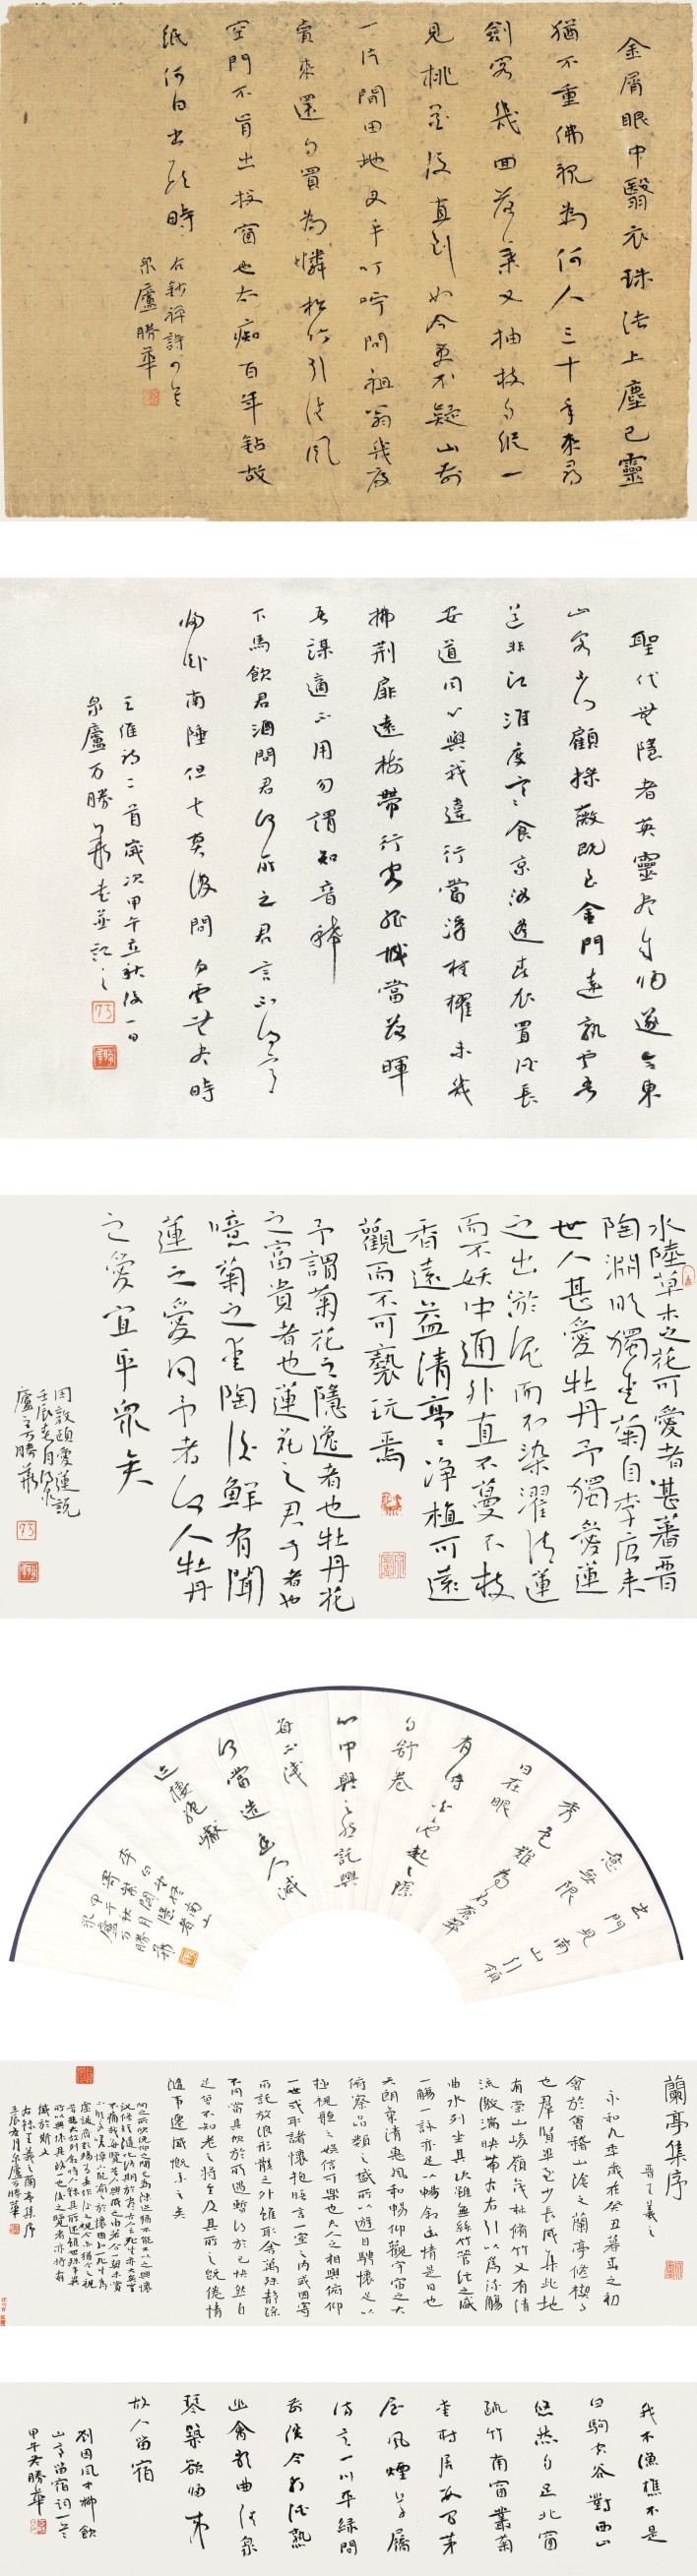 金屑眼中翳衣珠法上塵己靈
猶不重佛祖為何人三十年來尋
劍客幾回落葉又抽枝自從一
見桃花後直到如今更不疑山前
一片閒田地叉手叮嚀問祖翁幾度
賣來還自買為憐松竹引清風
空門不肯出投窗也太痴百年鑽故
紙何日出頭時
右鈔禪詩四首
泉廬勝華
聖代無隱者英靈盡來歸遂令東
山客不得顧採薇既至金門遠孰云吾
道非江淮度寒食京洛縫春衣置酒長
安道同心與我違行當浮桂櫂未幾
拂荊扉遠樹帶行客孤城當落暉
吾謀適不用勿謂知音稀
下馬飲君酒問君何所之君言不得意
歸臥南陲但去莫復問白雲無盡時
王維詩二首歲次甲午立秋後一日
泉廬万勝華書並記之
水陸草木之花可愛者甚蕃晉
陶淵明獨愛菊自李唐來
世人甚愛牡丹予獨愛蓮
之出淤泥而不染濯清漣
而不妖中通外直不蔓不枝
香遠益清亭亭淨植可遠
觀而不可褻玩焉
予謂菊花之隱逸者也牡丹花
之富貴者也蓮花之君子者也
噫菊之愛陶後鮮有聞
蓮之愛同予者何人牡丹
之愛宜乎眾矣
周敦頤愛蓮說
壬辰春月泉
廬万勝華
出門見南山引領
意無限
秀色難為名蒼翠
日在眼
有時白雲起天際
自舒卷
心中與之然託興
每不淺
何當造幽人滅
跡棲絕巘
李白望終南山
寄紫閣隱者
甲午秋月
泉廬万勝華
蘭亭集序
晉王羲之
永和九年歲在癸丑暮春之初
會於會稽山陰之蘭亭修禊事
也群賢畢至少長咸集此地
有崇山峻嶺茂林脩竹又有清
流激湍映帶左右引以為流觴
曲水列坐其次雖無絲竹管弦之盛
一觴一詠亦足以暢敘幽情是日也
天朗氣清惠風和暢仰觀宇宙之大
俯察品類之盛所以遊目騁懷足以
極視聽之娛信可樂也夫人之相與俯仰
一世或取諸懷抱晤言一室之內或因寄
所託放浪形骸之外雖取舍萬殊靜躁
不同當其欣於所遇暫得於己快然自
足曾不知老之將至及其所之既倦情
隨事遷感慨系之矣
向之所欣俛仰之間已為陳迹猶不能不以之興懷
況修短隨化終期於盡古人云死生亦大矣豈
不痛哉每覽昔人興感之由若合一契未嘗
不臨文嗟悼不能喻之於懷固知一死生為
虛誕齊彭殤為妄作後之視今亦猶今之視
昔悲夫故列敘時人錄其所述雖世殊事異
所以興懷其致一也後之覽者亦將有
感於斯文
右錄王羲之蘭亭集序
壬辰春月泉廬万勝華
我不漁樵不是
白駒空谷對西山
悠然自足北窗
疏竹南窗叢菊
愛村居數間茅
屋風煙草屬
清意一川平綠問
前溪今朝酒熟
幽禽歌曲清泉
琴築欲歸來
故人留宿
劉因風中柳飲
山亭留宿詞一首
甲午冬勝華